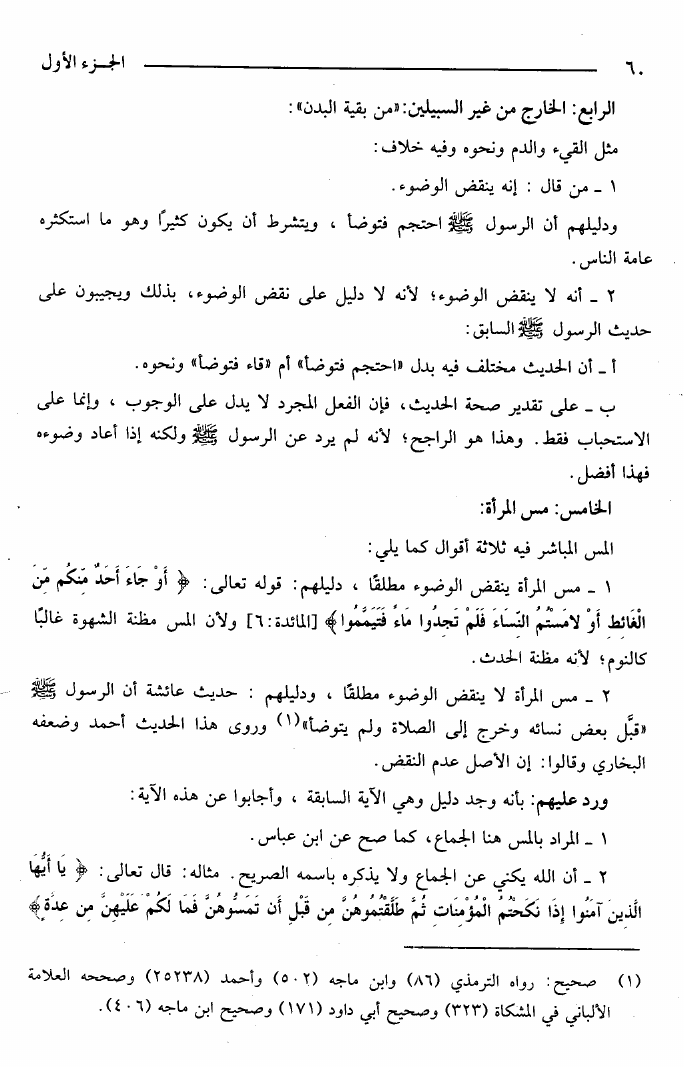 ٦٠ الجـزء الأول
الرابع: الخارج من غير السبيلين: «من بقية البدن»:
مثل القيء والدم ونحوه وفيه خلاف:
١ ـ من قال : إنه ينقض الوضوء.
ودليلهم أن الرسول ﷺ احتجم فتوضأ ، ويتشرط أن يكون كثيرًا وهو ما استكثره
عامة الناس.
٢ ـ أنه لا ينقض الوضوء؛ لأنه لا دليل على نقض الوضوء، بذلك ويجيبون على
حديث الرسول ﷺ السابق:
أ ـ أن الحديث مختلف فيه بدل «احتجم فتوضأ» أم «قاء فتوضأ» ونحوه.
ب ـ على تقدير صحة الحديث، فإن الفعل المجرد لا يدل على الوجوب ، وإنما على
الاستحباب فقط. وهذا هو الراجح؛ لأنه لم يرد عن الرسول ﷺ ولكنه إذا أعاد وضوءه
فهذا أفضل.
الخامس: مس المرأة:
المس المباشر فيه ثلاثة أقوال كما يلي:
١ ـ مس المرأة ينقض الوضوء مطلقًا ، دليلهم: قوله تعالى: ﴿ أَوْ جَاءَ أَحَدٌ مِّنكُم مِّنَ
الْغَائِطِ أَوْ لامَسْتُمُ النِّسَاءَ فَلَمْ تَجِدُوا مَاءً فَتَيَمَّمُوا﴾ [المائدة:٦] ولأن المس مظنة الشهوة غالبًا
كالنوم؛ لأنه مظنة الحدث.
٢ ـ مس المرأة لا ينقض الوضوء مطلقًا ، ودليلهم : حديث عائشة أن الرسول ﷺ
«قبَّل بعض نسائه وخرج إلى الصلاة ولم يتوضأ»(١) وروى هذا الحديث أحمد وضعفه
البخاري وقالوا: إن الأصل عدم النقض.
ورد عليهم: بأنه وجد دليل وهي الآية السابقة ، وأجابوا عن هذه الآية:
١ ـ المراد بالمس هنا الجماع، كما صح عن ابن عباس.
٢ ـ أن الله يكني عن الجماع ولا يذكره باسمه الصريح. مثاله: قال تعالى: ﴿ يَا أَيُّهَا
الَّذِينَ آمَنُوا إِذَا نَكَحْتُمُ الْمُؤْمِنَاتِ ثُمَّ طَلَّقْتُمُوهُنَّ مِن قَبْلِ أَن تَمَسُّوهُنَّ فَمَا لَكُمْ عَلَيْهِنَّ مِن عِدَّةٍ﴾
(١) صحيح: رواه الترمذي (٨٦) وابن ماجه (٥٠٢) وأحمد (٢٥٢٣٨) وصححه العلامة
الألباني في المشكاة (٣٢٣) وصحيح أبي داود (١٧١) وصحيح ابن ماجه (٤٠٦).